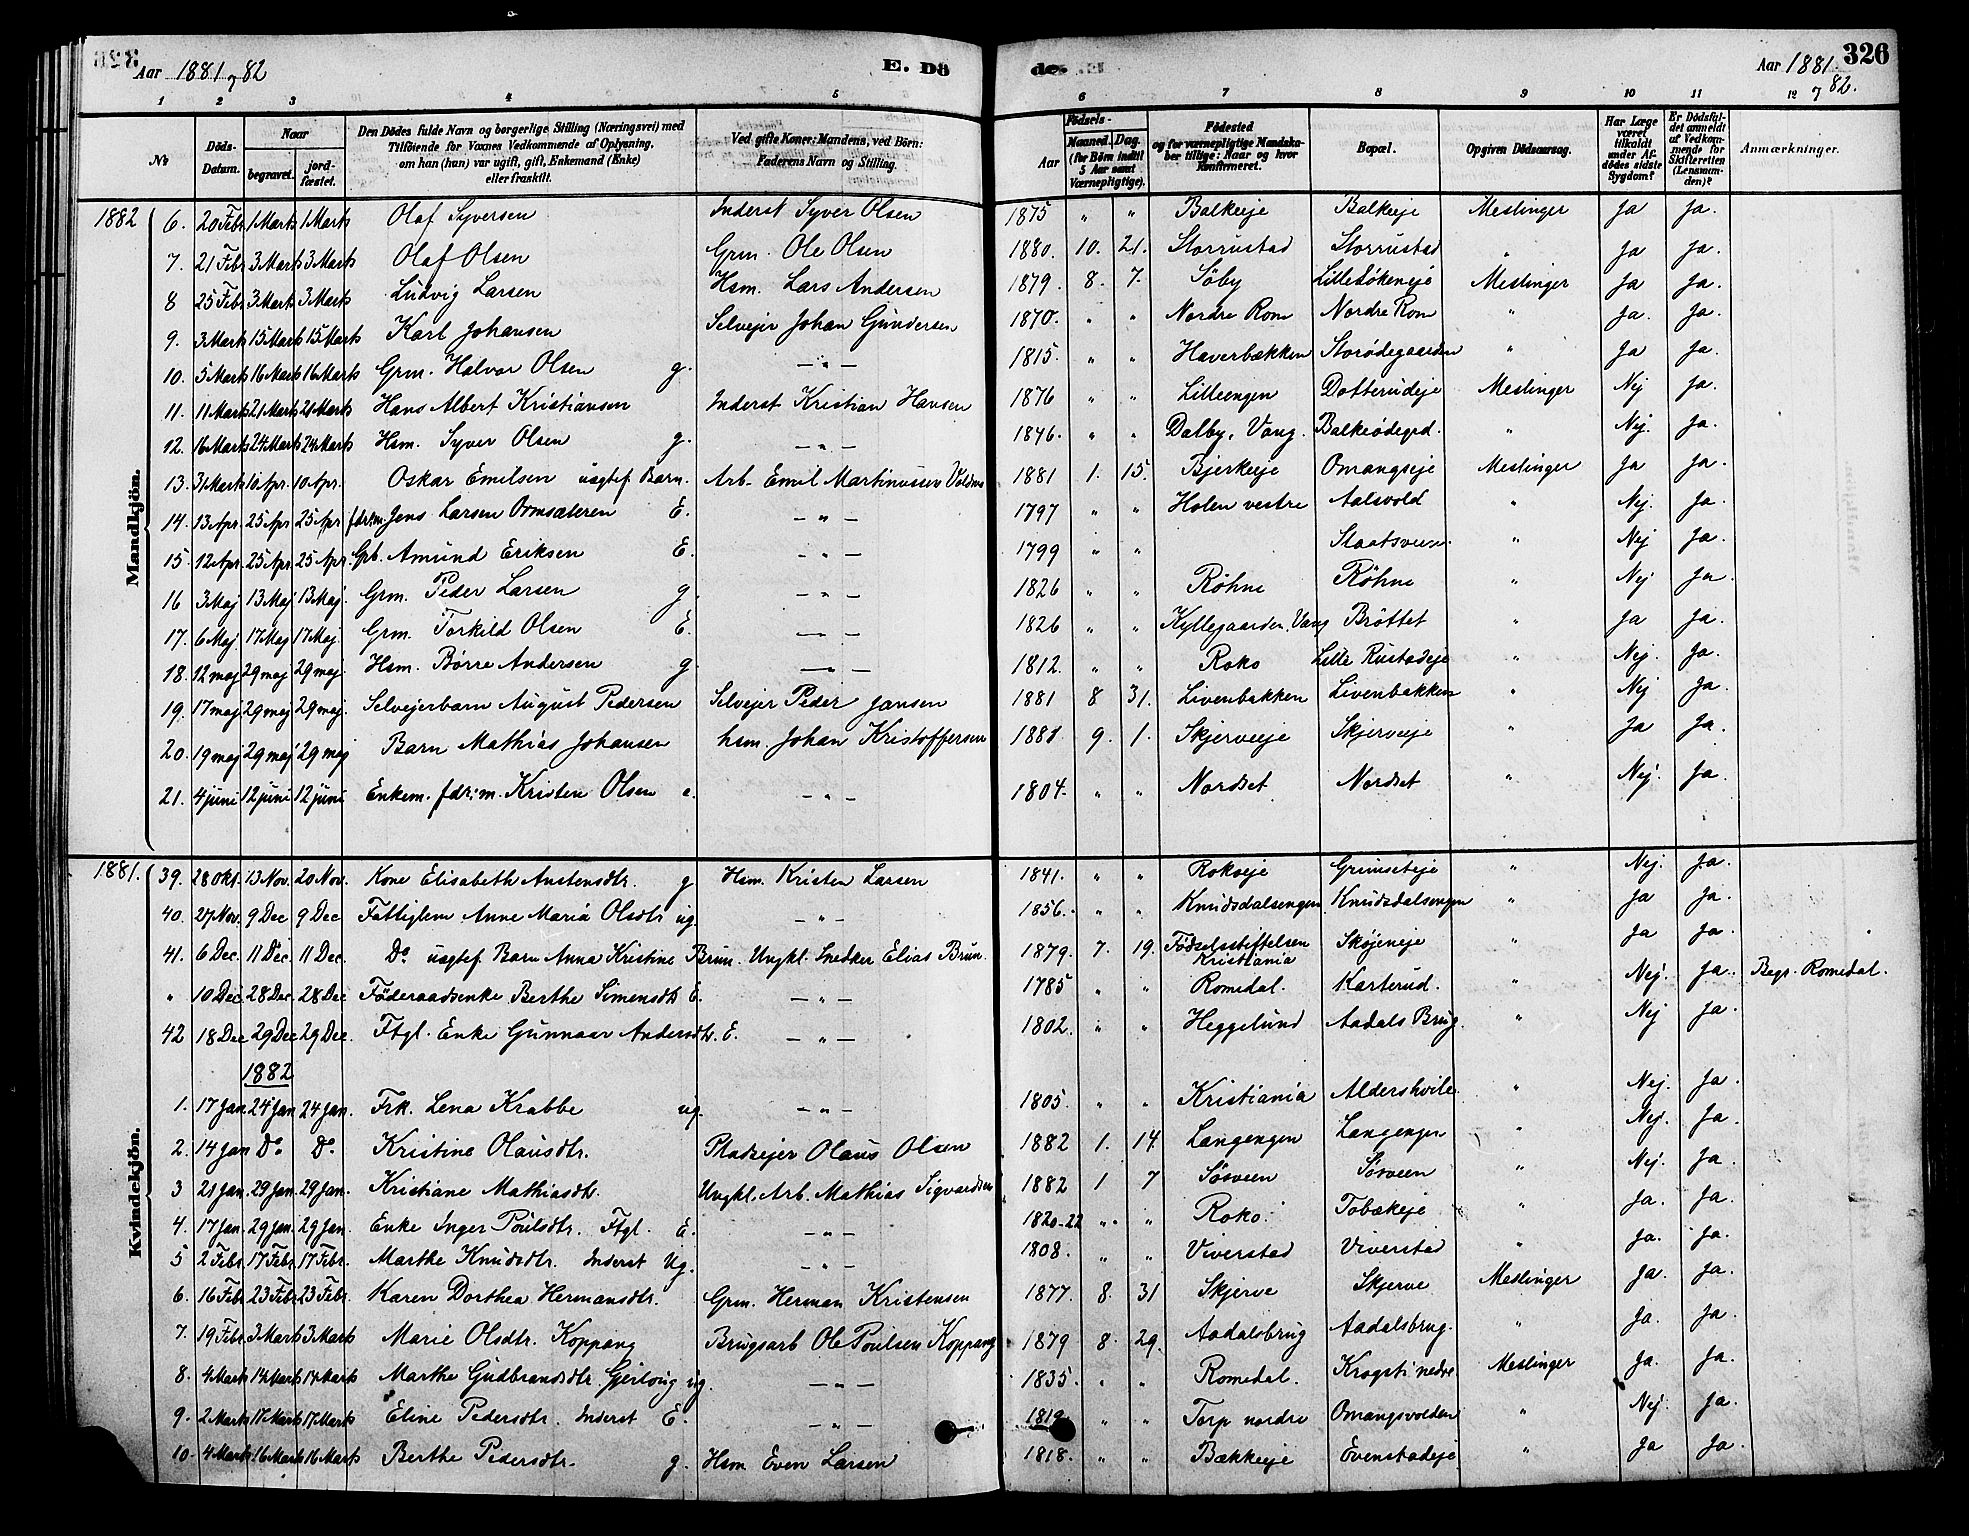 Aar 1881 82 E. Dö de. 326 Aar 1881 82.
1 2 3 4 5 6 7 8 9 10 11 12
No Döds-Datum. Naar begravet. jord-fæstet. Den Dödes fulde Navn og borgerlige Stilling (Næringsvei) med Tilföiende for Voxnes Vedkommende af Oplysning, om han (hun) var ugift, gift, Enkemand (Enke) eller fraskilt. Ved gifte Koner: Mandens, ved Börn: Faderens Navn og Stilling. Födsels- Aar Maaned. Dag. (for Börn indtil 5 Aar samt Værnepligtige). Födested og for værnepligtige Mandskaber tillige: Naar og hvor Konfirmeret. Bopæl. Opgiven Dödsaarsag. Har Læge været tilkaldt under Afdödes sidste Sygdom? Er Dödsfaldet anmeldt af Vedkommende for Skifteretten (Lensmanden)? Anmærkninger.
Mandkjön.
1882 6. 20 Febr 1 Marts 1 Marts Olaf Syversen Inderst Syver Olsen 1875 " " Balkeeje Balkeeje Meslinger Ja Ja.
7. 21 Febr 3 Marts 3 Marts Olaf Olsen Grm. Ole Olsen 1880. 10. 21. Storrustad Storrustad " Ja Ja.
8 25 Febr 3 Marts 3 Marts Ludvig Larsen Hsm. Lars Andersen 1879. 8. 7. Söby Lille Lökeneje Meslinger Ja Ja.
9. 3 Marts 15 Marts 15 Marts Karl Johansen Selvejer Johan Gundersen 1870. " " Nordre Rom Nordre Rom " Ja. Ja.
10. 5 Marts 16 Marts 16 Marts Grm. Halvor Olsen g. — " — 1815. " " Haverbækken Storödegaarden " Ja Ja.
11. 11 Marts 21 Marts 21 Marts Hans Albert Kristiansen Inderst Kristian Hansen 1876 " " Lilleengen Dotterudeje Meslinger Nej Ja.
12. 16 Marts 24 Marts 24 Marts Hsm. Syver Olsen g. — " — 1846. " " Dalby, Vang. Balkeödegrd. " Nej. Ja.
13. 31 Marts 10 Apr. 10 Apr. Oskar Emilsen uægtef Barn. Arb. Emil Martinussen 1881 1. 15. Bjerkeeje Omangseje Meslinger Ja Ja.
14. 13 Apr 25 Apr 25 Apr fdr:m. Jens Larsen Ormsæteren E. — " — 1797 " " Holen vestre Aalsvold " Nej. Ja.
15. 12 Apr. 25 Apr. 25 Apr. Grb. Amund Eriksen E. — " — 1799 " " " Nej Ja.
16 3 Maj 13 Maj 13 Maj. Grm. Peder Larsen g. — " — 1826 " " Röhne Röhne " Nej Ja.
17. 6 Maj. 17 Maj 17 Maj. Grm. Torkild Olsen E. — " — 1826 " " Kyllegaarden, Vang Bröttet " Ja Ja.
18. 12 maj 29 maj 29 maj. Hsm. Börre Andersen g. — " — 1812. " " Roko Lille Rustadeje " Nej. Ja.
19. 17 maj 29 maj 29 maj. Selvejerbarn August Pedersen Selvejer Peder Jansen 1881 8 31. Livenbakken Livenbakken " Nej Ja.
20. 19 maj 29 maj 29 maj Barn Mathias Johansen hsm. Johan Kristoffersen 1881 9. 1. Skjerveeje Skjerveeje " Ja Ja.
21. 4 juni 12 juni 12 juni Enkem. fdr:m. Kristen Olsen e. — " — 1804. " " Nordset Nordset " Nej. Ja.
Kvindekjön.
1881. 39. 28 Okt. 13 Nov. 20 Nov. Kone Elisabeth Austensdtr. g Hsm. Kristen Larsen 1841. " " Rokoeje Grimseteje " Nej. Ja.
40. 27 Nov. 9 Dec 9 Dec Fattiglem Anne Maria Olsdtr ug. — " — 1856. " " Knudsdalsengen Knudsdalsengen " Ja Ja.
41. 6 Dec. 11 Dec. 11 Dec. Do uægtef. Barn Anna Kristine Brun. Ungkl. Snedker Elias Brun. 1879. 7. 19. Födselsstiftelsen Kristiania Sköjeneje " Ja Ja.
" 10 Dec 28 Dec. 28 Dec Föderaadsenke Berthe Simensdtr E. — " — 1785 " " Romedal. Karterud. " Nej. Ja. Begr. Romedal.
42 18 Dec 29 Dec 29 Dec. Ftgl. Enke Gunnaar Andersdtr. E. — " — 1802. " " Heggelund Aadals Brug. " Nej Ja.
1882
1. 17 Jan 24 Jan 24 Jan. Frk. Lena Krabbe ug. — " — 1805. " " Kristiania Aldershvile " Nej. Ja.
2. 14 Jan Do Do Kristine Olausdtr. Pladsejer Olaus Olsen 1882 1. 14. Langengen Langengen " Nej. Ja.
3 21 Jan. 29 Jan. 29 Jan. Kristiane Mathiasdtr. Ungkl. Arb. Mathias Sigvardsen 1882 1 7 Sösveen Sösveen " Nej. Ja.
4. 17 Jan. 29 Jan. 29 Jan. Enke Inger Poulsdtr. Ftgl. E. — " — 1820-22 " " Roko. Tobækeje " Ja. Ja.
5 2 Febr. 17 Febr 17 Febr. Marthe Knudsdtr. Inderst Ug. — " — 1808. " " Viverstad Viverstad " Ja. Ja.
6. 16 Febr 23 Febr 23 Febr. Karen Dorthea Hermansdtr. Grm. Herman Kristensen 1877. 8. 31 Skjerve Skjerve Meslinger Ja. Ja.
7. 19 Febr. 3 Marts 3 Marts Marie Olsdtr. Koppang Brugsarb Ole Poulsen Koppang 1879 8. 29. Aadalsbrug Aadalsbrug. " Ja. Ja.
8. 4 Marts 14 Marts 14 Marts Marthe Gudbrandsdtr. ug. — " — 1835. " " Romedal. Krogsti nedre Meslinger Ja. Ja.
9. 2 Marts 17 Marts 17 Marts Eline Pedersdtr. Inderst E. — " — 1819. " " Torp nordre Omangsvolden " Nej. Ja.
10. 4 Marts 16 Marts 16 Marts Berthe Pedersdtr. g. Hsm Even Larsen 1818. " " Bækkeeje Evenstadeje " Ja Ja.